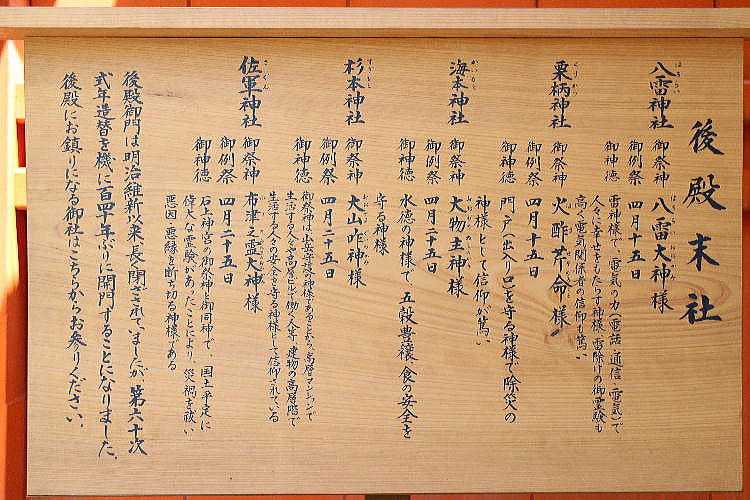 後殿末社
八雷神社
御祭神 八雷大神様
御例祭 四月十五日
御神徳 雷神様で、電気の力(電話、通信、電気)で
人々に幸せをもたらす神様 雷除けの御霊験も
高く電気関係者の信仰も篤い
栗柄神社
御祭神 火酢芹命様
御例祭 四月十五日
御神徳 門戸(出入り口)を守る神様で除災の
神様として信仰が篤い
海本神社
御祭神 大物主神様
御例祭 四月二十五日
御神徳 水徳の神様で、五穀豊穣、食の安全を
守る神様
杉本神社
御祭神 大山咋神様
御例祭 四月二十五日
御神徳 御祭神は山岳守護の神様であることから、高層マンションで
生活する人々や高層ビルで働く人等、建物の高層階で
生活する人々の安全を守る神様として信仰されている
佐軍神社
御祭神 布津之霊大神様
御例祭 四月二十五日
御神徳 石上神宮の御祭神と御同神で、国土平定に
偉大な霊験があったことにより、災禍を祓い
悪因、悪縁を断ち切る神様である
後殿御門は明治維新以来、長く閉ざされていましたが、第六十次
式年造替を機に百四十年ぶりに開門することになりました。
後殿にお鎮りになる御社はこちらからお参りください。